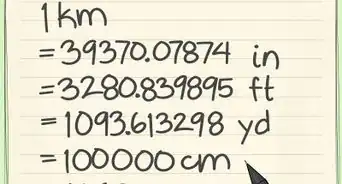 1 km
=39370.07874 in
=3280.839895 ft
=1093.613298 yd
=100000 cm